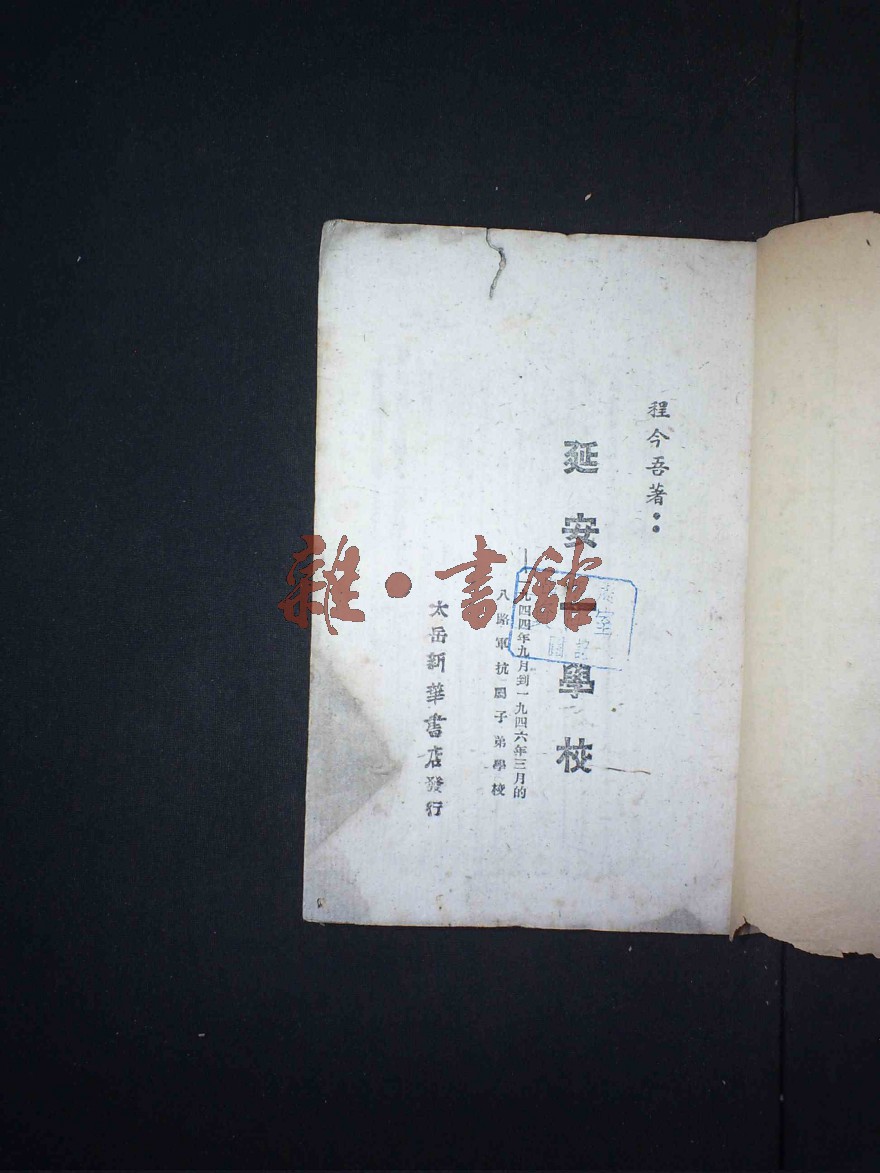 程今吾著：
延安一學校
——一九四四年九月到一九四六年三月的
八路軍抗屬子弟學校
太岳新華書店發行
雜·書館